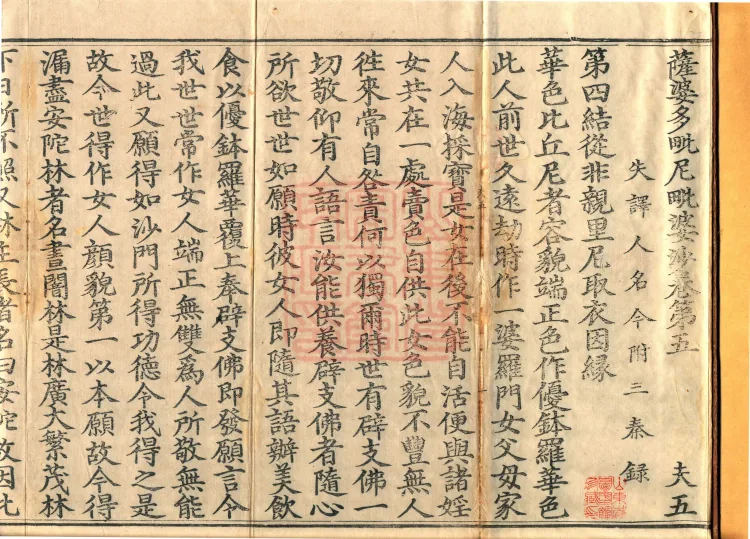 薩婆多毗尼毗婆沙卷第五　夫五
失譯人名今附三秦錄
第四結從非親里尼取衣因緣
華色比丘尼者容貌端正色作優鉢羅華色
此人前世久遠劫時作一婆羅門女父母家
人入海採寶是女在後不能自活便與諸婬
女共在一處賣色自供此女色貌不豐無人
徃來常自咎責何以獨爾時世有辟支佛一
切敬仰有人語言汝能供養辟支佛者隨心
所欲世世如願時彼女人即隨其語辦美飲
食以優鉢羅華覆上奉辟支佛即發願言令
我世世常作女人端正無雙為人所敬無能
過此又願得如沙門所得功德令我得之是
故今世得作女人顏貌第一以本願故今得
漏盡安陀林者名晝闇林是林廣大繁茂林
下日所不照又林主長者名曰安陀故因此